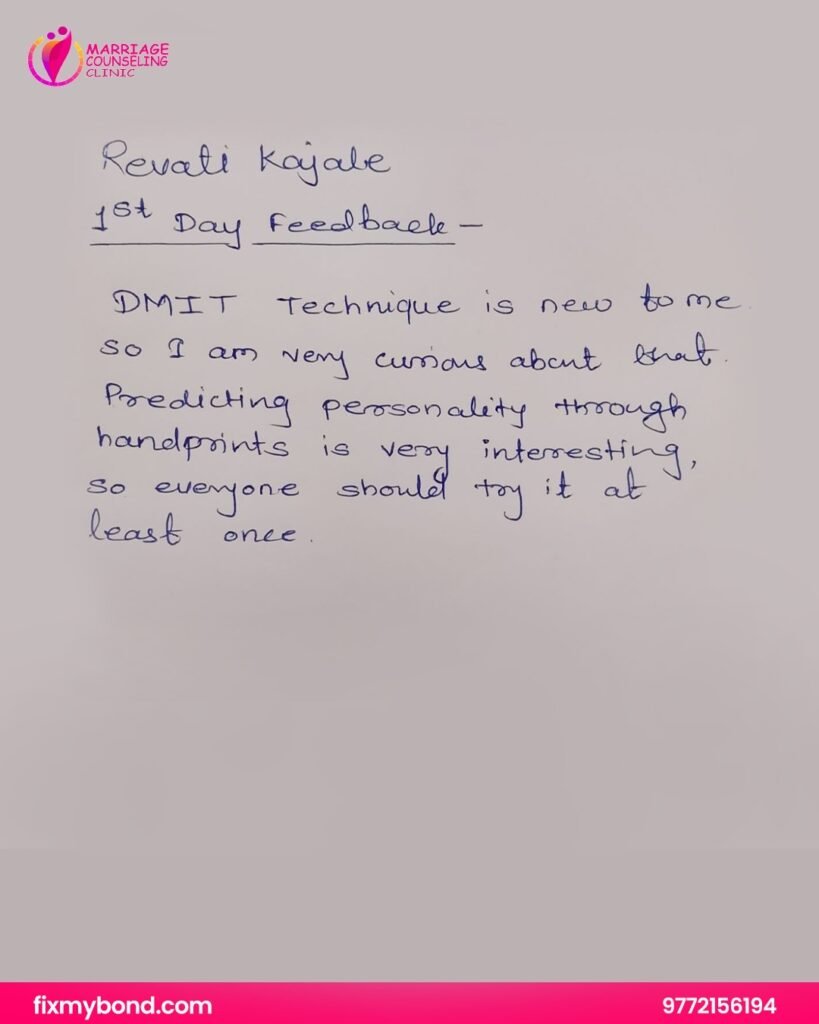 MARRIAGE
COUNSELING
CLINIC
Revati Kajale
1st Day Feedback -
DMIT Technique is new to me.
so I am very curious about that.
Predicting personality through
handprints is very interesting,
so everyone should try it at
least once.
fixmybond.com
9772156194